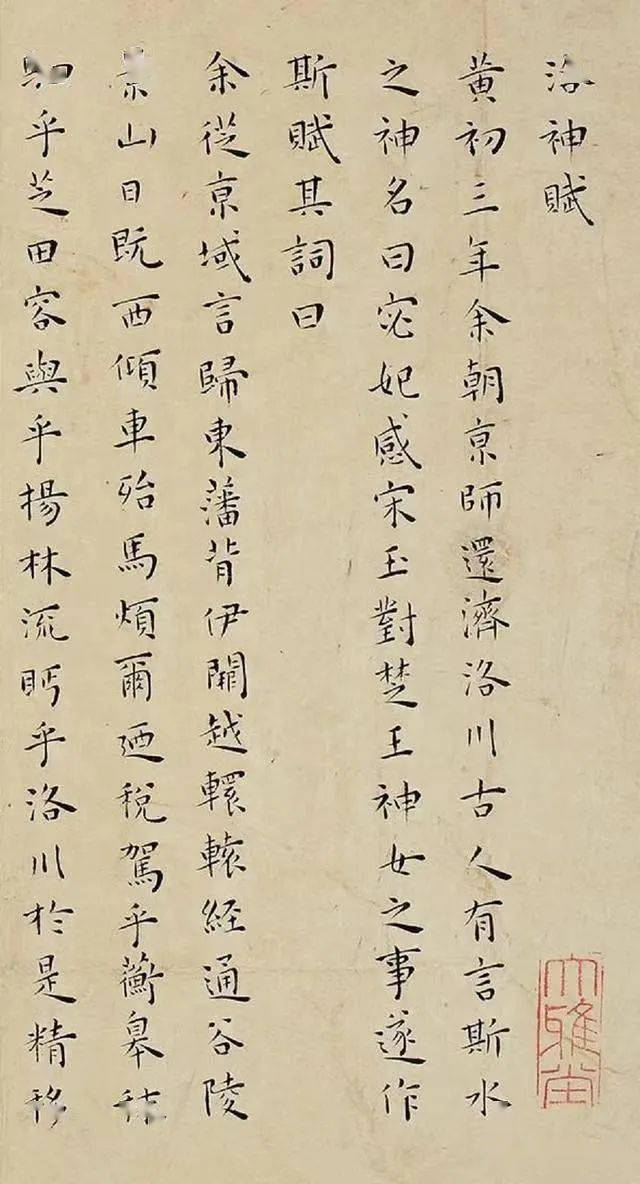 洛神賦
黄初三年余朝亰師還濟洛川古人有言斯水
之神名曰宓妃感宋玉對楚王神女之事遂作
斯賦其詞曰
余從亰域言歸東藩背伊闕越轘轅經通谷陵
山日既西傾車殆馬煩爾迺稅駕乎蘅皋
乎芝田容與乎揚林流眄乎洛川於是精移
大雅堂